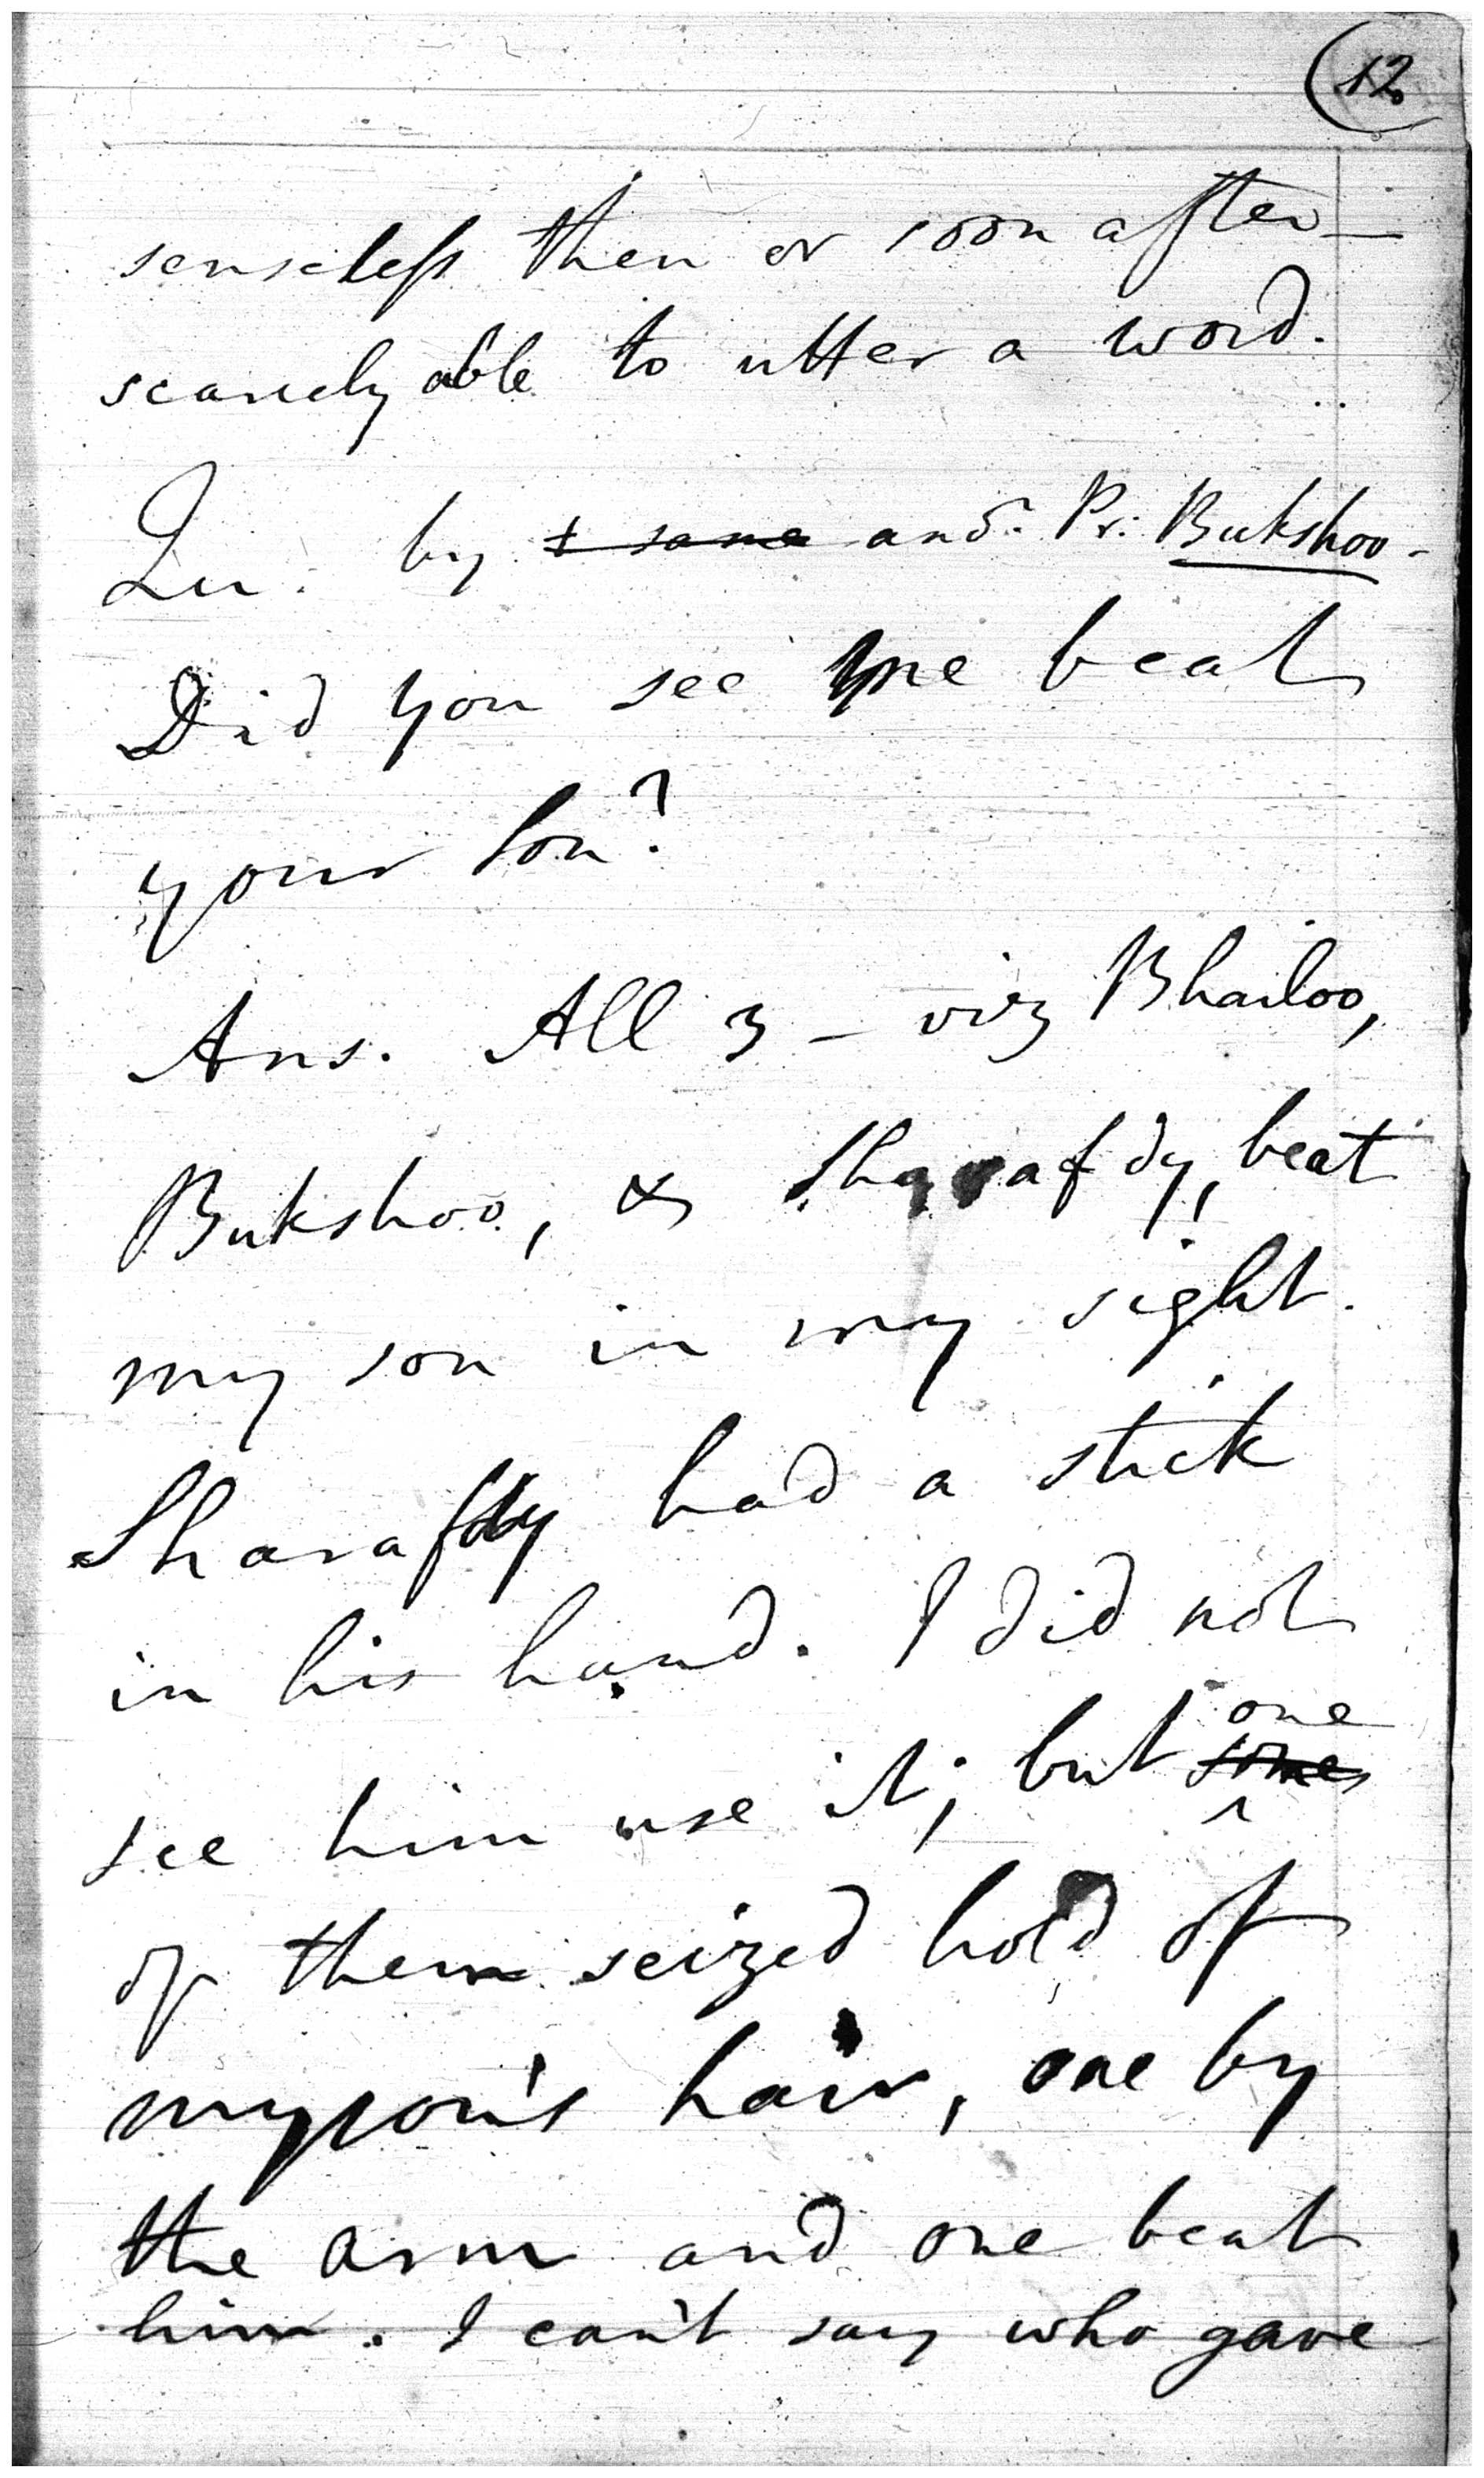 12
senseless then or soon after—
scarcely able to utter a word.
Qu. by t same and. Pr: Bukshoo-
Did you see me beat
your Son?
Ans. All 3 – viz Bhailoo,
Bukshoo, & Sharafdy, beat
my son in my sight.
Sharafdy had a stick
in his hand. I did not
see him use it; but some one
of them seized hold of
my son's hair, one by
the arm and one beat
him. I can't say who gave